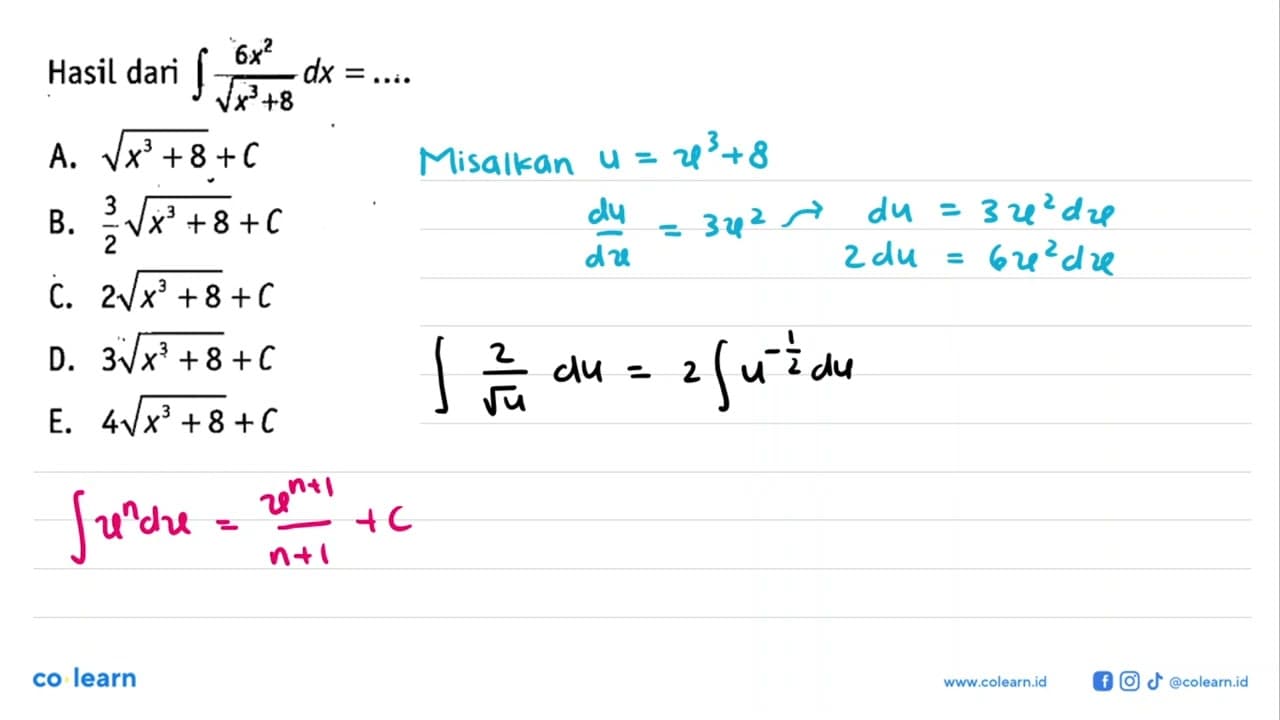 Hasil dari ∫ 6x²/√(x³+8) dx = ....
A. √(x³ + 8) + C
B. 3/2 √(x³ + 8) + C
C. 2√(x³ + 8) + C
D. 3√(x³ + 8) + C
E. 4√(x³ + 8) + C
Misalkan u = x³ + 8
du/dx = 3x² → du = 3x² dx
2 du = 6x² dx
∫ 2/√u du = 2 ∫ u^(-1/2) du
∫ xⁿ dx = x^(n+1)/(n+1) + C
co learn
www.colearn.id
@colearn.id